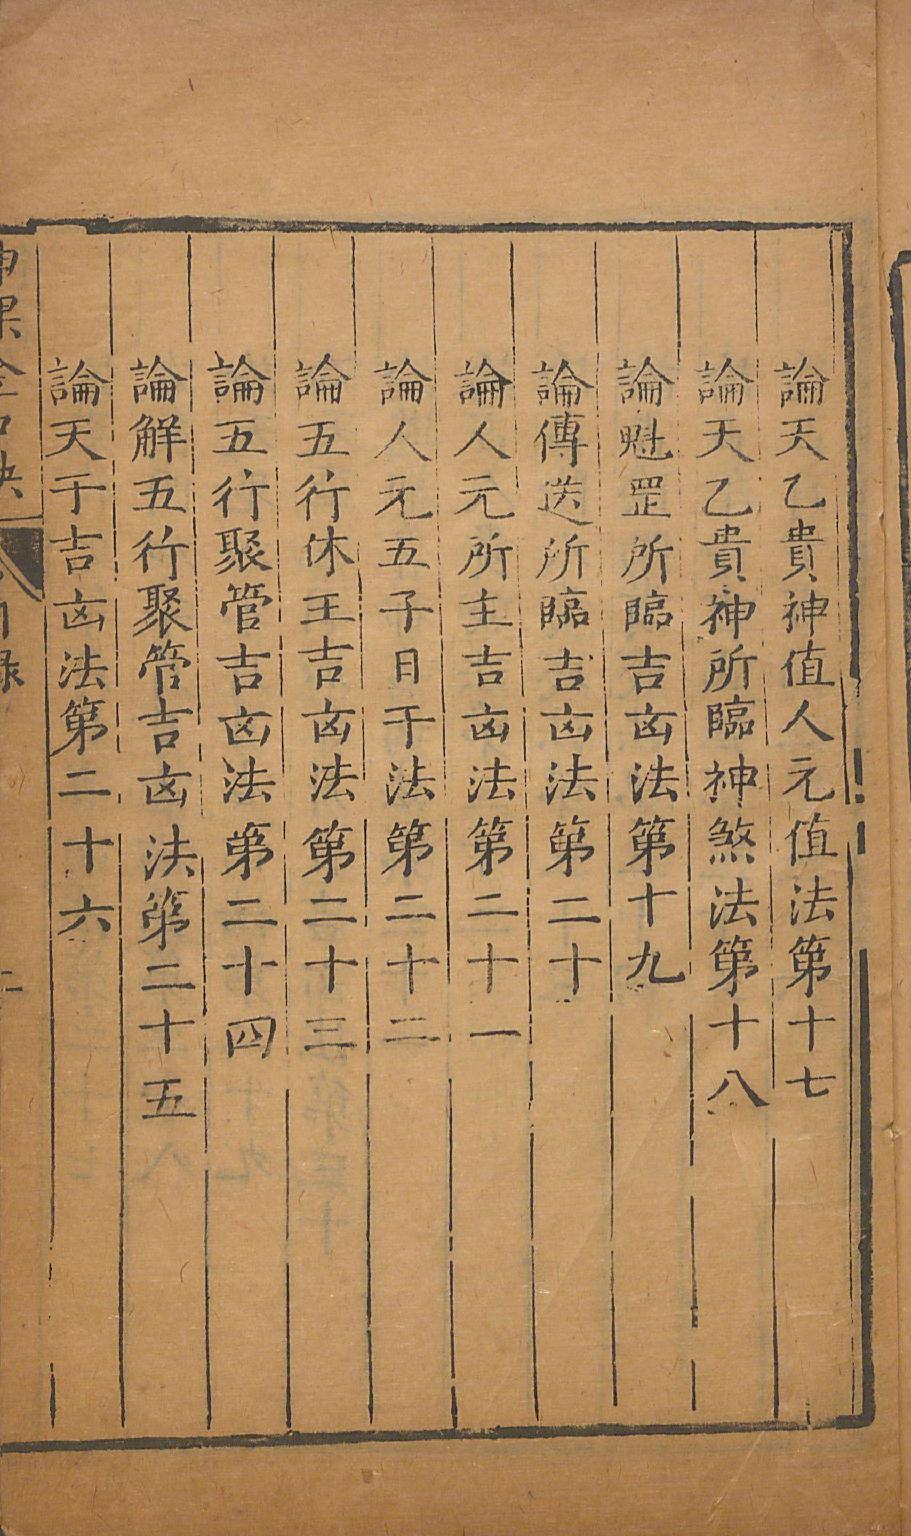 論天乙貴神值人元值法第十七
論天乙貴神所臨神煞法第十八
論魁罡所臨吉凶法第十九
論傳送所臨吉凶法第二十
論人元所主吉凶法第二十一
論人元五子日干法第二十二
論五行休王吉凶法第二十三
論五行聚管吉凶法第二十四
論解五行聚管吉凶法第二十五
論天干吉凶法第二十六
神課金口訣 目錄 二